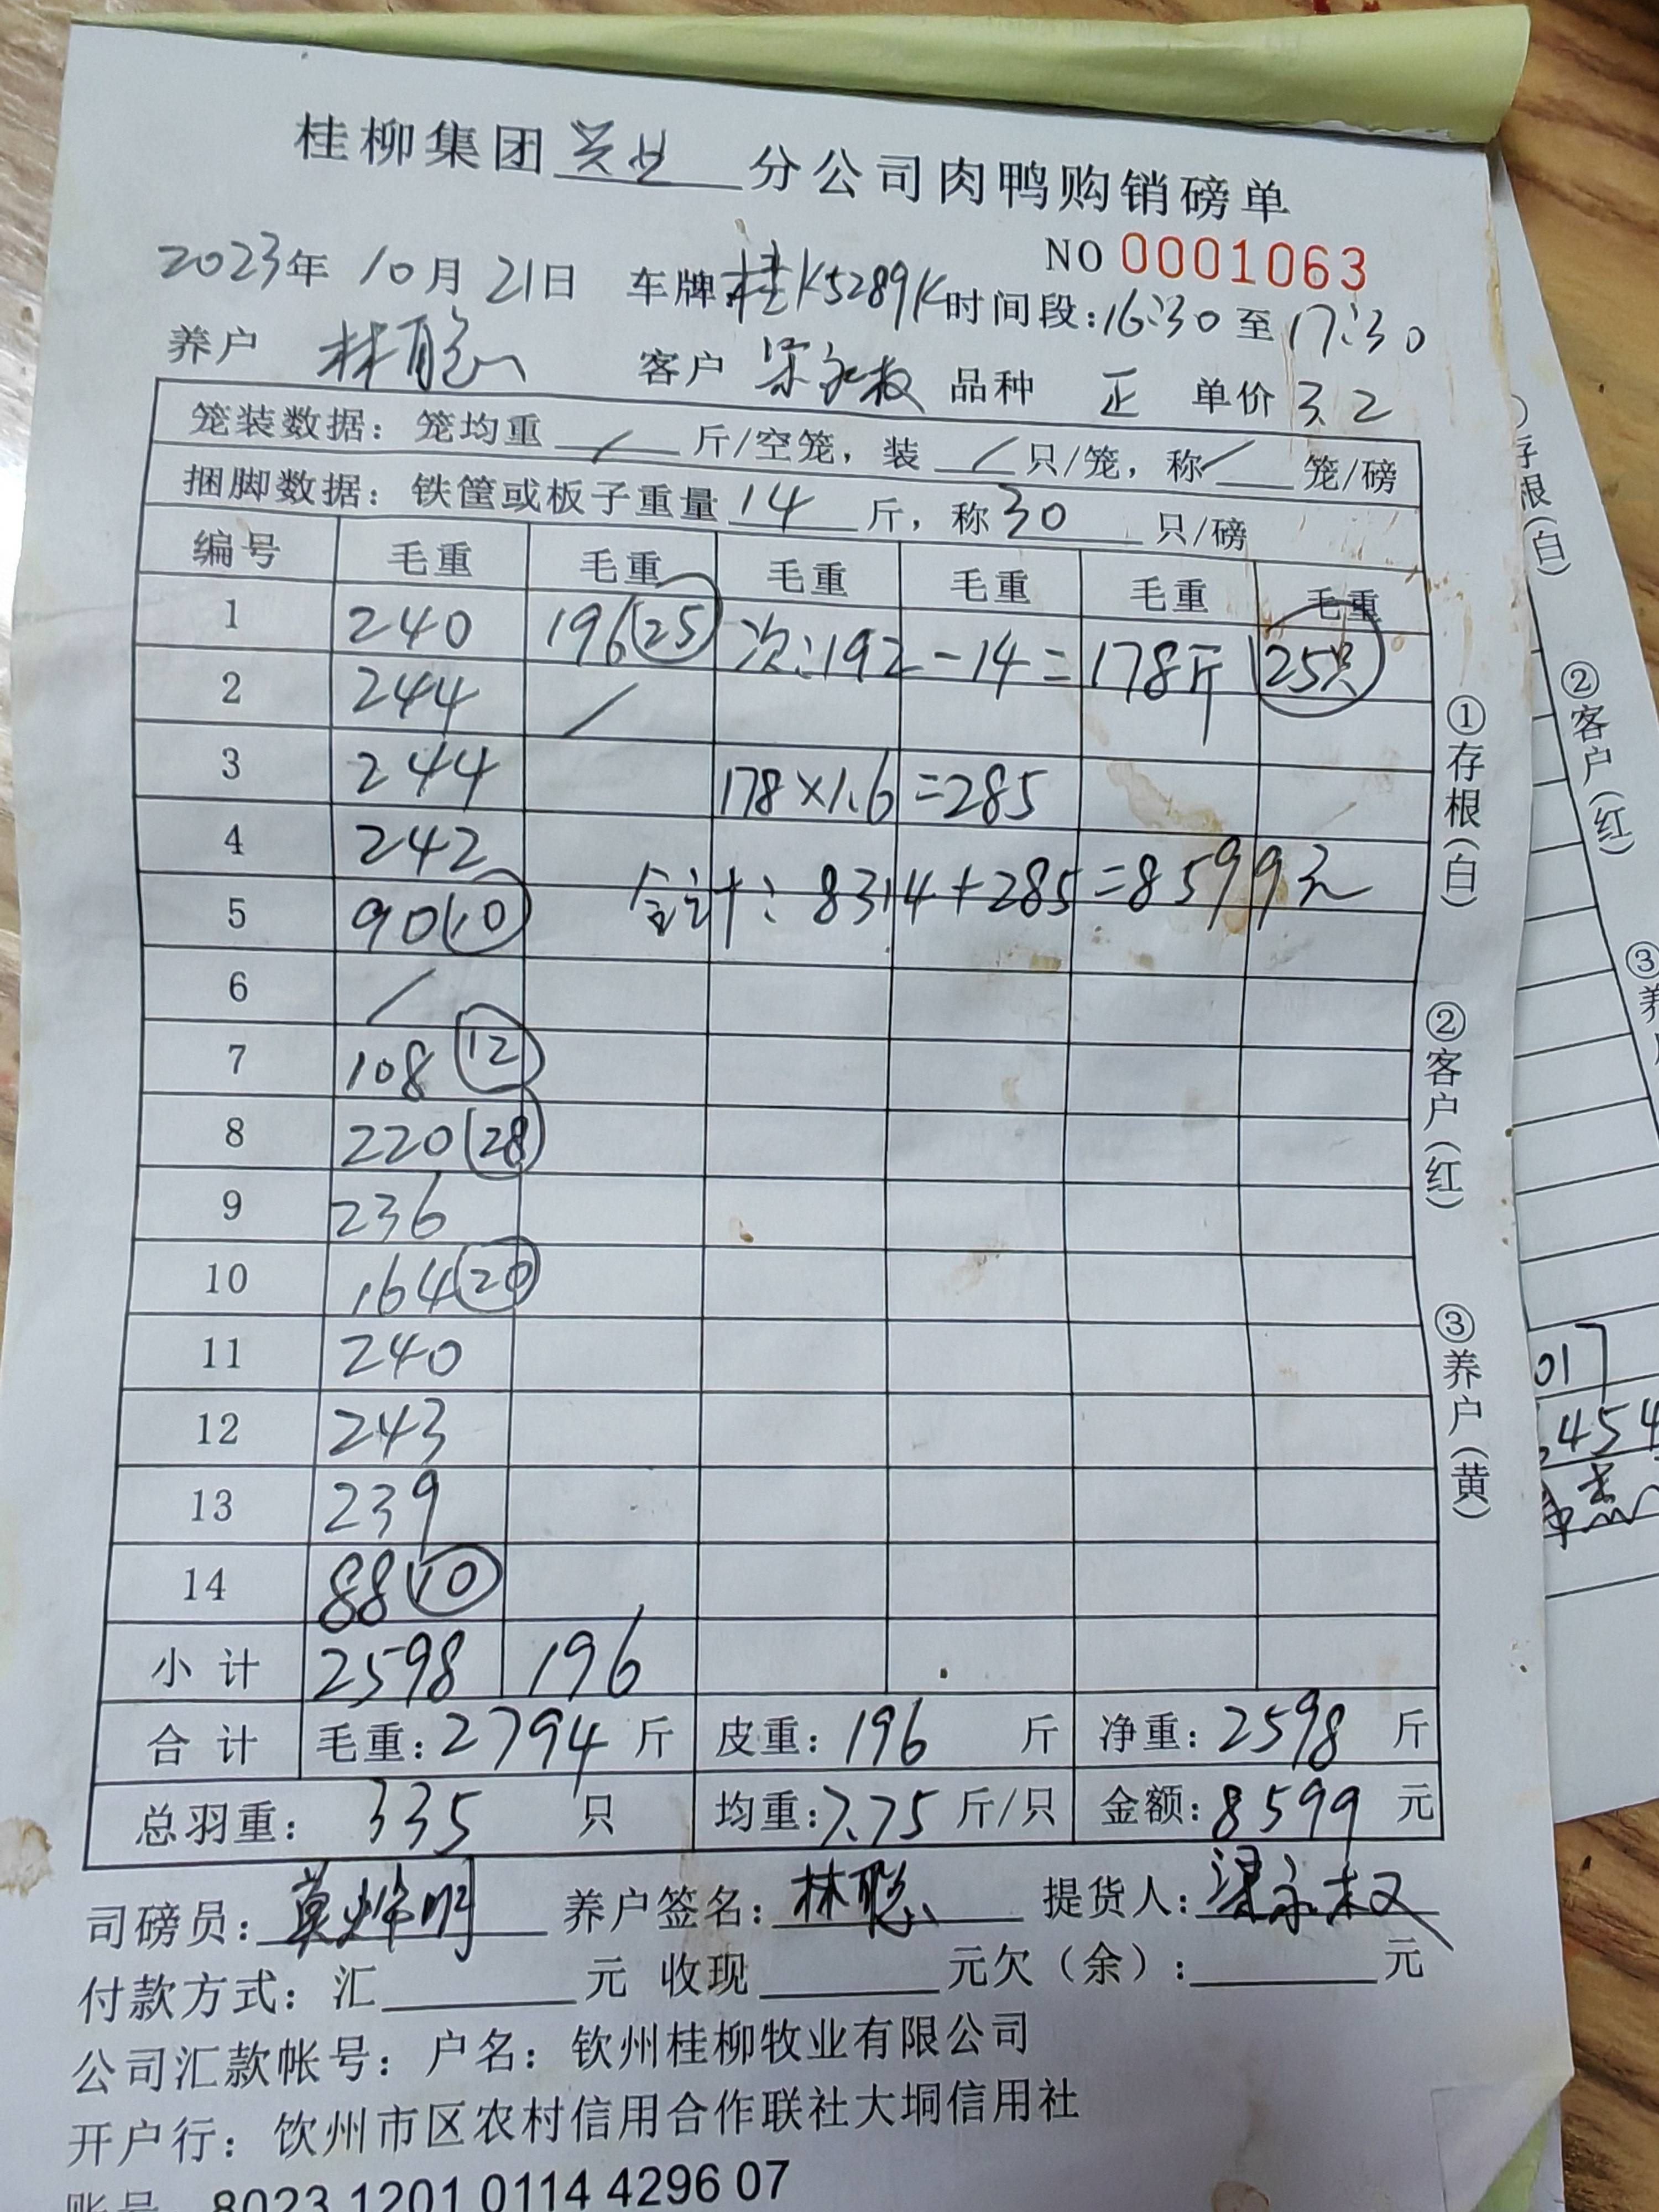 桂柳集团兴业分公司肉鸭购销磅单
NO 0001063
2023年 10月 21日 车牌:桂K5289K 时间段:16:30 至 17:30
养户 林聪 客户 梁永权 品种 正 单价 3.2
笼装数据：笼均重 / 斤/空笼，装 / 只/笼，称 / 笼/磅
捆脚数据：铁筐或板子重量 14 斤，称 30 只/磅
编号 毛重 毛重 毛重 毛重 毛重 毛重
1 240 196 (25) 次:192-14=178斤 (25只)
2 244 /
3 244 178×1.6=285
4 242
5 90 (10) 合计：8314+285=8599元
6 /
7 108 (12)
8 220 (28)
9 236
10 164 (20)
11 240
12 243
13 239
14 88 (10)
小计 2598 196
合计 毛重：2794 斤 皮重：196 斤 净重：2598 斤
总羽重： 335 只 均重：7.75 斤/只 金额：8599 元
司磅员： 养户签名：林聪 提货人：梁永权
付款方式：汇 元 收现 元欠（余）： 元
公司汇款帐号：户名：钦州桂柳牧业有限公司
开户行：饮州市区农村信用合作联社大垌信用社
账号 8023 1201 0114 4296 07
①存根（白）
②客户（红）
③养户（黄）
存根（白）
②客户（红）
③养
017
454